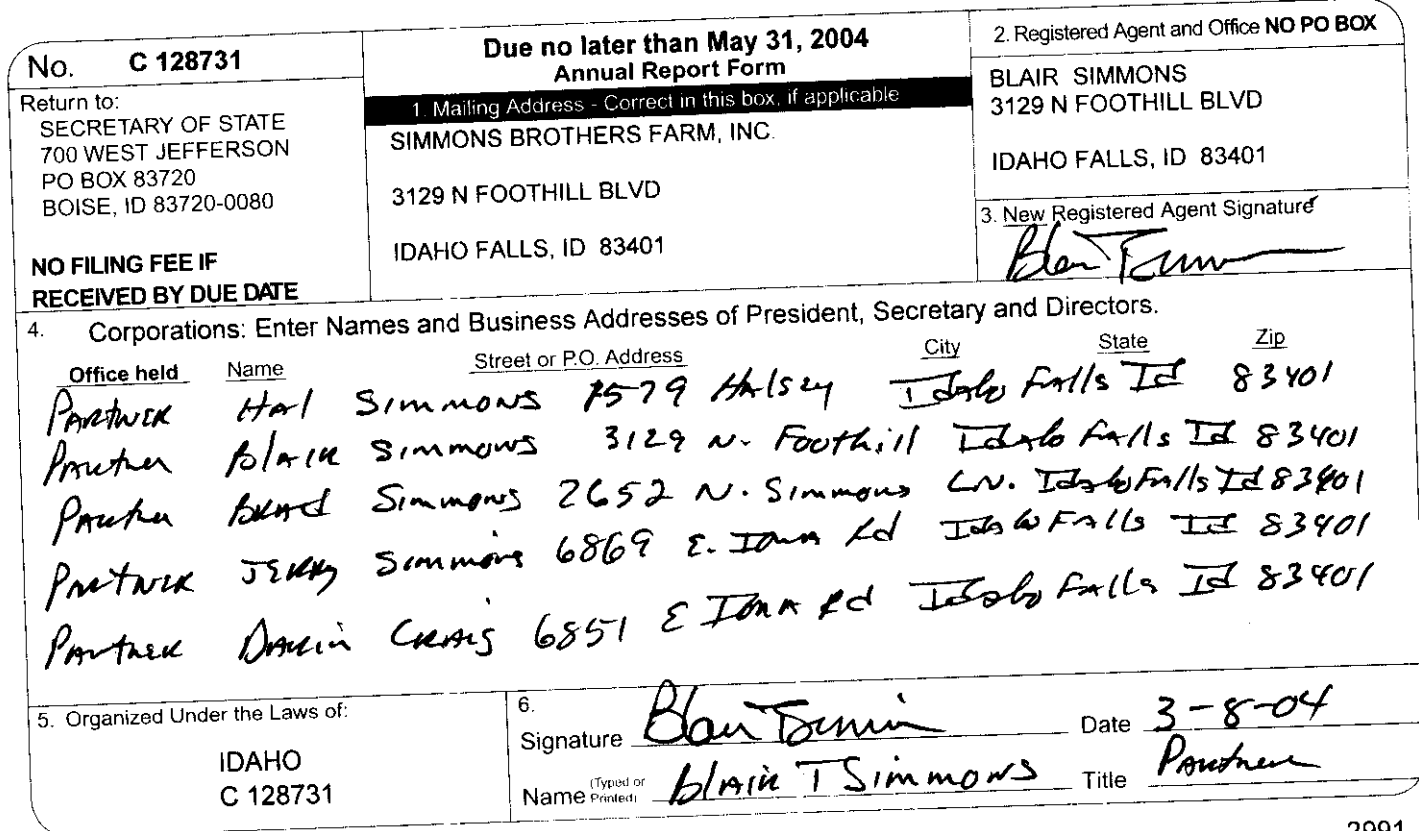 No. C 128731
Return to:
SECRETARY OF STATE
700 WEST JEFFERSON
PO BOX 83720
BOISE, ID 83720-0080
NO FILING FEE IF
RECEIVED BY DUE DATE
Due no later than May 31, 2004
Annual Report Form
1. Mailing Address - Correct in this box, if applicable
SIMMONS BROTHERS FARM, INC.
3129 N FOOTHILL BLVD
IDAHO FALLS, ID 83401
2. Registered Agent and Office NO PO BOX
BLAIR SIMMONS
3129 N FOOTHILL BLVD
IDAHO FALLS, ID 83401
3. New Registered Agent Signature
4. Corporations: Enter Names and Business Addresses of President, Secretary and Directors.
Office held Name Street or P.O. Address City State Zip
Partner Hal Simmons Halsey Idaho Falls Id 83401
Partner Blair Simmons 3129 N. Foothill Idaho Falls Id 83401
Partner Brad Simmons 2652 N. Simmons LN. Idaho Falls Id 83401
Partner Jerry Simmons 6869 E. Iona Rd Idaho Falls Id 83401
Partner Darin Craig 6851 E Iona Rd Idaho Falls Id 83401
5. Organized Under the Laws of:
IDAHO
C 128731
6.
Signature Date 3-8-04
Name (Typed or Printed) Blair T Simmons Title Partner
2991